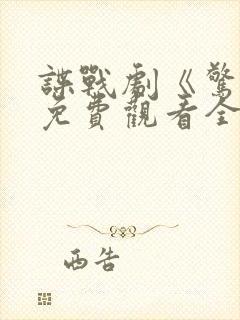 諜戰劇《驚
免費觀看全
西告